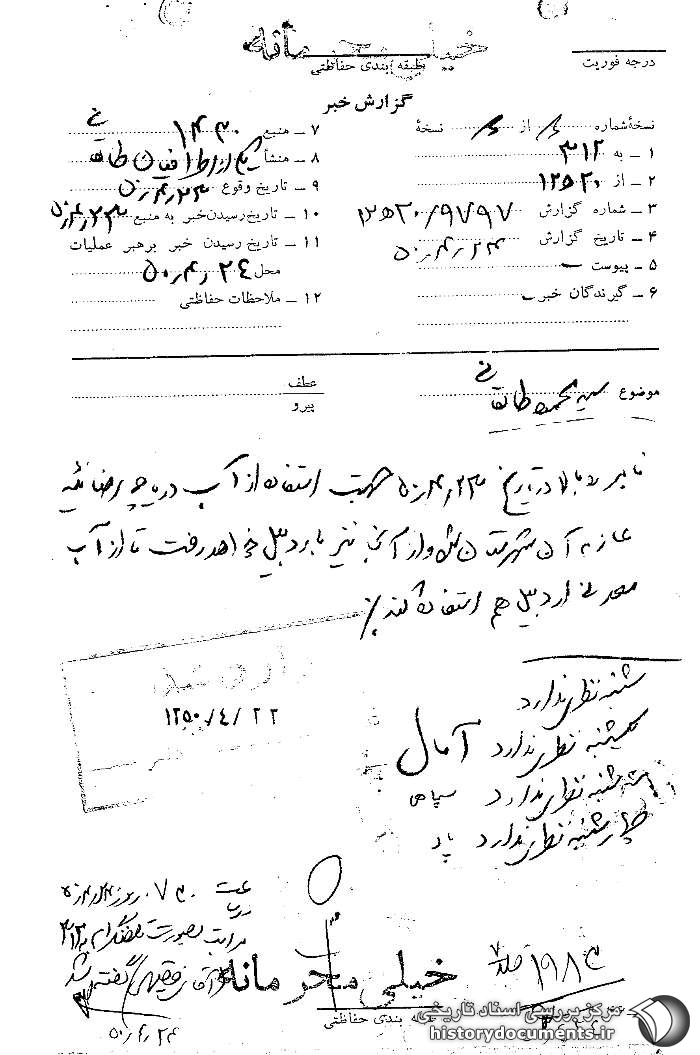 خیلی محرمانه
طبقه بندی حفاظتی
درجه فوریت
گزارش خبر
نسخهٔ شماره از نسخهٔ
۱ ــ به ۳۱۲
۲ ــ از ۱۲ﻫ۲۰
۳ ــ شماره گزارش ۱۲ﻫ۲۰/۹۷۹۷
۴ ــ تاریخ گزارش ۵۰٫۴٫۲۴
۵ ــ پیوست
۶ ــ گیرندگان خبر
۷ ــ منبع ۱۴۳۰
۸ ــ منشأ یکی از اطرافیان طالقانی
۹ ــ تاریخ وقوع ۵۰٫۴٫۲۳
۱۰ ــ تاریخ رسیدن خبر به منبع ۵۰٫۴٫۲۳
۱۱ ــ تاریخ رسیدن خبر برهبر عملیات
محل ۵۰٫۴٫۲٤
۱۲ ــ ملاحظات حفاظتی
موضوع سید محمود طالقانی
عطف
پیرو
نامبرده بالا در تاریخ ۵۰٫۴٫۲۳ جهت استفاده از آب دریاچه رضائیه
عازم آن شهرستان شد و از آنجا نیز باردبیل خواهد رفت تا از آب
معدنی اردبیل هم استفاده کند
۱۳۵۰/٤/۲۲
شنبه نظری ندارد
یکشنبه نظری ندارد آمال
سه شنبه نظری ندارد سپاهی
چهارشنبه نظری ندارد
ساعت ۷۳۰ روز ۵۰٫۴٫۲۴
مراتب بصورت تلفنگرام به ۳۱۲
آقای فقیهی گفته شد
۵۰٫۴٫۲۴
خیلی محرمانه
طبقه بندی حفاظتی
مرکز بررسی اسناد تاریخی
historydocuments.ir